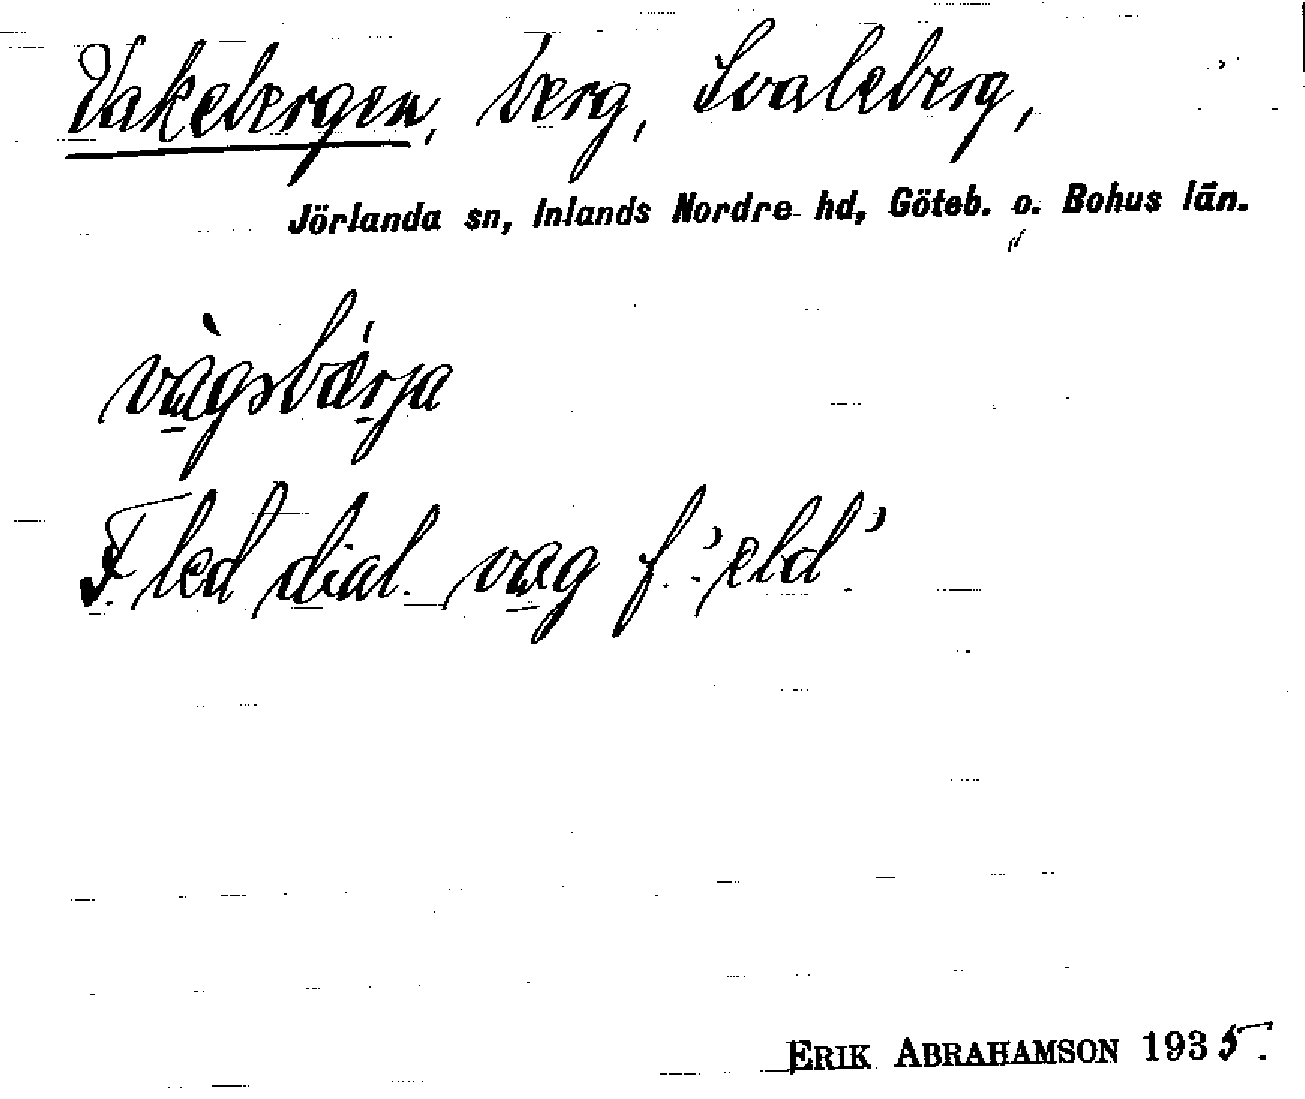 Vakebergen, berg, Svaleberg,
Jörlanda sn, Inlands Nordre hd, Göteb. o. Bohus län.
vàgsbǽrja
F. led dial. vag f. 'eld'.
ERIK ABRAHAMSON 1935.